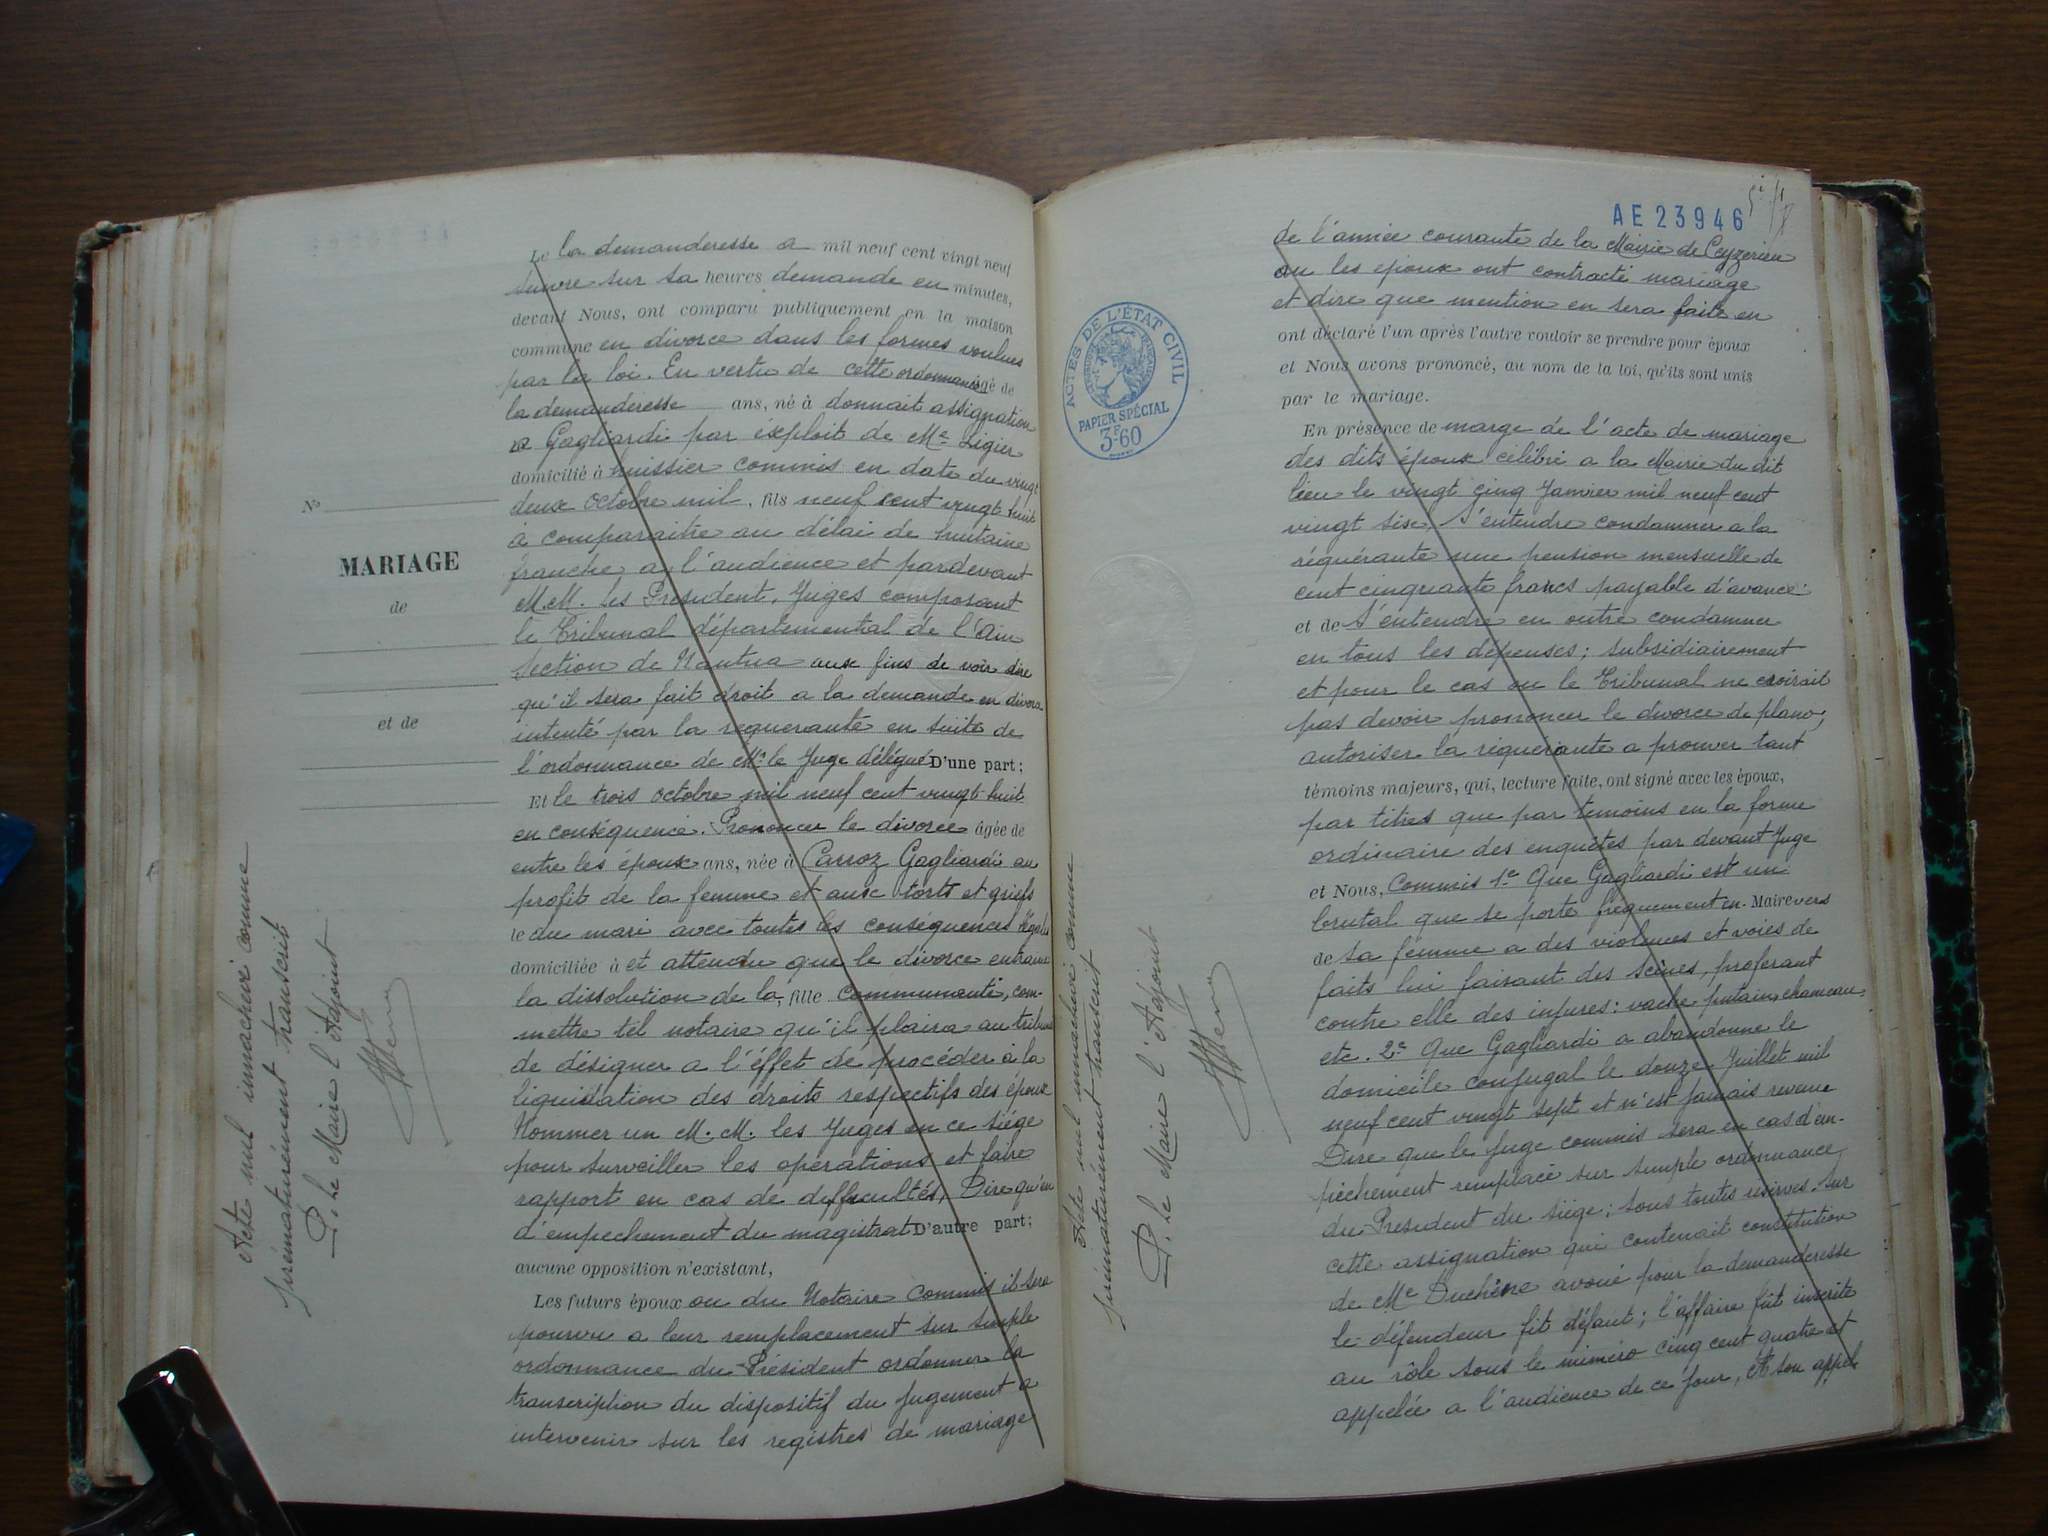 Le la demanderesse a mil neuf cent vingt neuf
suivre sur sa heures demande en minutes,
devant Nous, ont comparu publiquement en la maison
commune en divorce dans les formes voulues
par la loi. En vertu de cette ordonnance âgé de
la demanderesse ans, né à donnait assignation
a Gagliardi par exploit de Me Ligier
domicilié à huissier commis en date du vingt
deux octobre mil, fils neuf cent vingt huit
à comparaitre au délai de huitaine
franche a l'audience et pardevant
M.M. les President, Juges composant
le Tribunal départemental de l'Ain
section de Nantua aux fins de voir dire
qu'il sera fait droit a la demande en divorce
intenté par la requerante en suite de
l'ordonnance de Mr le Juge délégué D'une part;
Et le trois octobre mil neuf cent vingt-huit
en conséquence. Prononcer le divorce âgée de
entre les époux ans, née à Carroz Gagliardi au
profit de la femme et aux torts et griefs
le du mari avec toutes les conséquences légales
domiciliée à et attendu que le divorce entraine
la dissolution de la, fille communauté, com-
mettre tel notaire qu'il plaira au tribunal
de désigner a l'éffet de procéder à la
liquidation des droits respectifs des époux
Nommer un M.M. les Juges en ce siège
pour surveiller les opérations et faire
rapport en cas de difficultés, Dire qu'en
d'empechement du magistrat D'autre part;
aucune opposition n'existant,
Les futurs époux ou du Notaire Commis il sera
pourvu a leur remplacement sur simple
ordonnance du Président ordonner la
transcription du dispositif du Jugement a
intervenir sur les registres de mariage
No
MARIAGE
de
et de
Acte nul innachevé comme
prématurément transcrit
P. Le Maire l'Adjoint
AE 23946
de l'année courante de la Mairie de Ceyzerieu
ou les epoux ont contracté mariage
et dire que mention en sera faite en
ont déclaré l'un après l'autre vouloir se prendre pour époux
et Nous avons prononcé, au nom de la loi, qu'ils sont unis
par le mariage.
En présence de marge de l'acte de mariage
des dits époux célébré a la Mairie du dit
lieu le vingt cinq Janvier mil neuf cent
vingt six, S'entendre condamner a la
réquérante une pension mensuelle de
cent cinquante francs payable d'avance:
et de S'entendre en outre condamner
en tous les dépenses; subsidiairement
et pour le cas ou le Tribunal ne croirait
pas devoir prononcer le divorce de plano,
autoriser la réquérante a prouver tant
témoins majeurs, qui, lecture faite, ont signé avec les époux,
par titres que par temoins en la forme
ordinaire des enquêtes par devant Juge
et Nous, Commis 1e Que Gagliardi est un
brutal que se porte fréquement en Maire vers
de sa femme a des violences et voies de
faits lui faisant des scènes, proferant
contre elle des injures: vache putain, chameau,
etc. 2e Que Gagliardi a abandonne le
domicile conjugal le douze Juillet mil
neuf cent vingt sept et n'est jamais revenu
Dire que le Juge commis sera en cas d'em-
pêchement remplacé sur simple ordonnance
du President du siège; sous toutes réserves. Sur
cette assignation qui contenait constitution
de Me Duchêne avoué pour la demanderesse
le défendeur fit défaut; l'affaire fût inscrite
au rôle sous le numéro cinq cent quatre et
appelée a l'audience de ce jour, A son appel
ACTES DE L'ÉTAT CIVIL
PAPIER SPÉCIAL
3F60
Acte nul innachevé comme
prématurément transcrit
P. Le Maire l'Adjoint